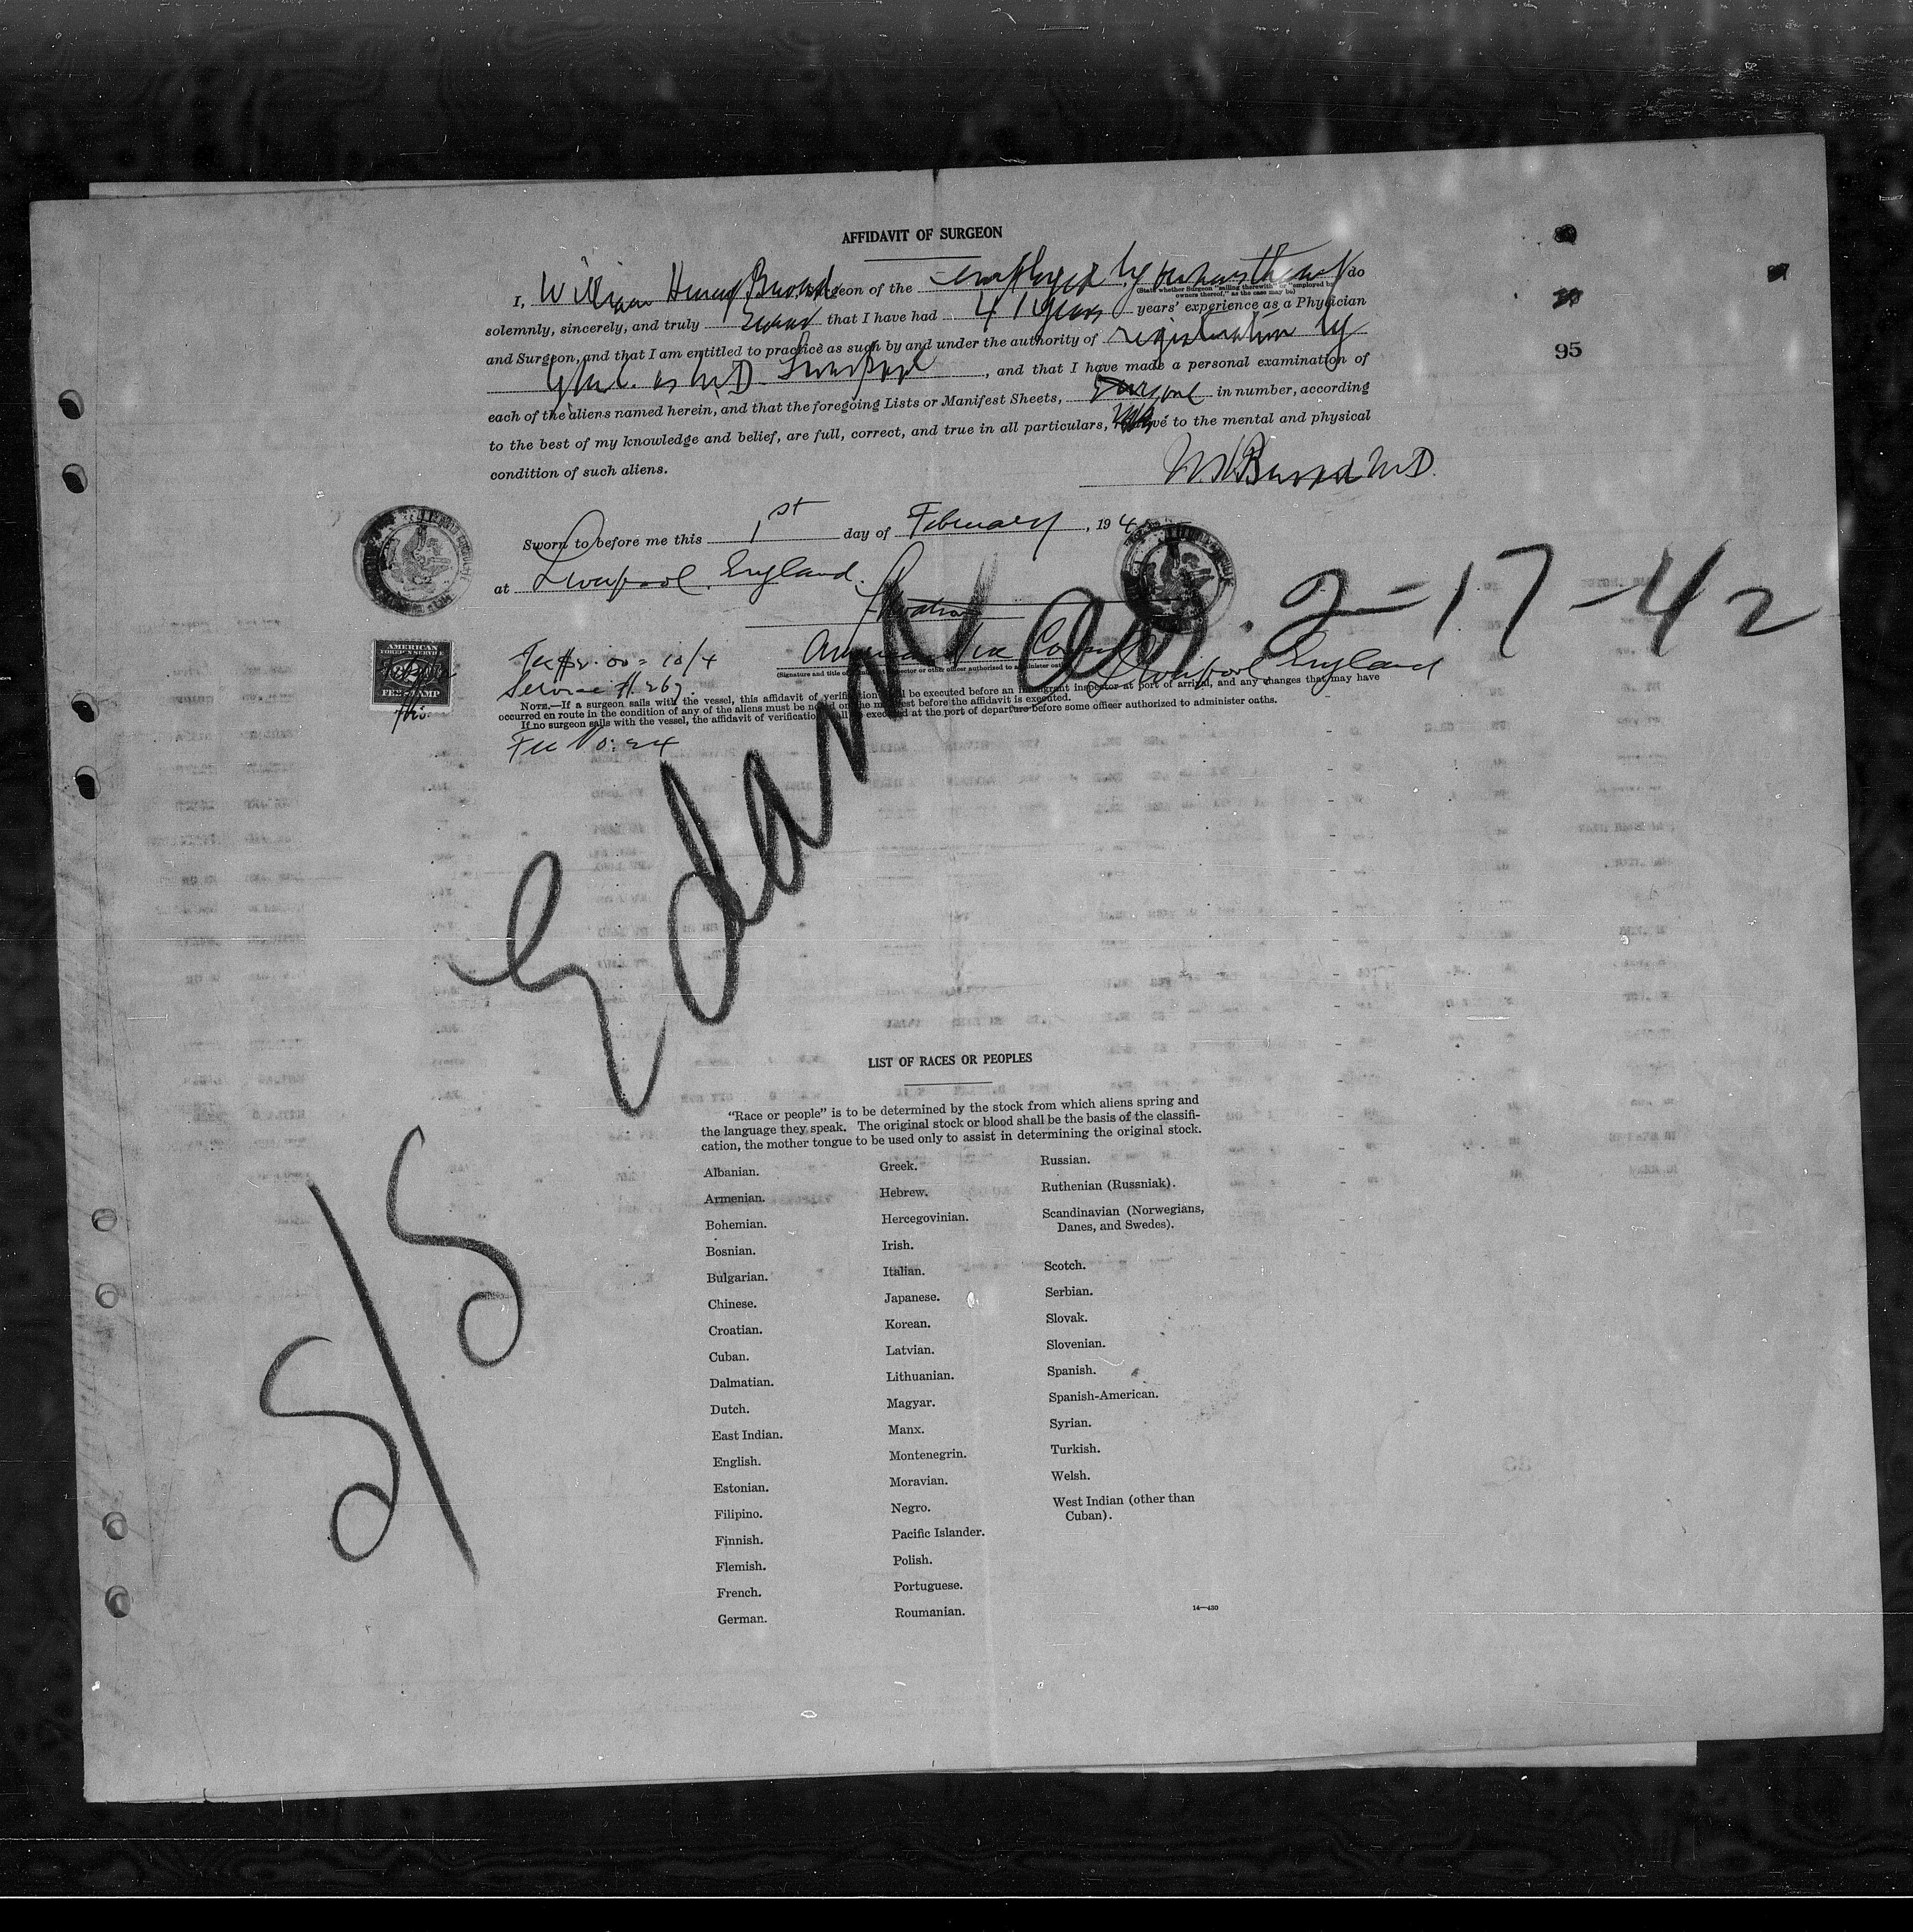 AFFIDAVIT OF SURGEON
I, William Henry Surgeon of the employed by owners thereof do
(State whether Surgeon "sailing therewith" or "employed by owners thereof," as the case may be)
solemnly, sincerely, and truly swear that I have had 41 years years' experience as a Physician
and Surgeon, and that I am entitled to practice as such by and under the authority of registration by
as M.D. Liverpool, and that I have made a personal examination of
each of the aliens named herein, and that the foregoing Lists or Manifest Sheets, in number, according
to the best of my knowledge and belief, are full, correct, and true in all particulars, relative to the mental and physical
condition of such aliens.
M.D.
Sworn to before me this 1st day of February, 194
at Liverpool, England.
American Vice Consul
Liverpool England
(Signature and title of or other officer authorized to administer oaths)
AMERICAN
FOREIGN SERVICE
FEE STAMP
Fee $2.00 = 10/4
Service # 267
NOTE.—If a surgeon sails with the vessel, this affidavit of verification shall be executed before an immigrant inspector at port of arrival, and any changes that may have
occurred en route in the condition of any of the aliens must be noted on the manifest before the affidavit is executed.
If no surgeon sails with the vessel, the affidavit of verification shall be executed at the port of departure before some officer authorized to administer oaths.
Fee No: 24
95
2-17-42
S/S Edam
LIST OF RACES OR PEOPLES
"Race or people" is to be determined by the stock from which aliens spring and
the language they speak. The original stock or blood shall be the basis of the classifi-
cation, the mother tongue to be used only to assist in determining the original stock.
Albanian.
Armenian.
Bohemian.
Bosnian.
Bulgarian.
Chinese.
Croatian.
Cuban.
Dalmatian.
Dutch.
East Indian.
English.
Estonian.
Filipino.
Finnish.
Flemish.
French.
German.
Greek.
Hebrew.
Hercegovinian.
Irish.
Italian.
Japanese.
Korean.
Latvian.
Lithuanian.
Magyar.
Manx.
Montenegrin.
Moravian.
Negro.
Pacific Islander.
Polish.
Portuguese.
Roumanian.
Russian.
Ruthenian (Russniak).
Scandinavian (Norwegians,
Danes, and Swedes).
Scotch.
Serbian.
Slovak.
Slovenian.
Spanish.
Spanish-American.
Syrian.
Turkish.
Welsh.
West Indian (other than
Cuban).
14—430